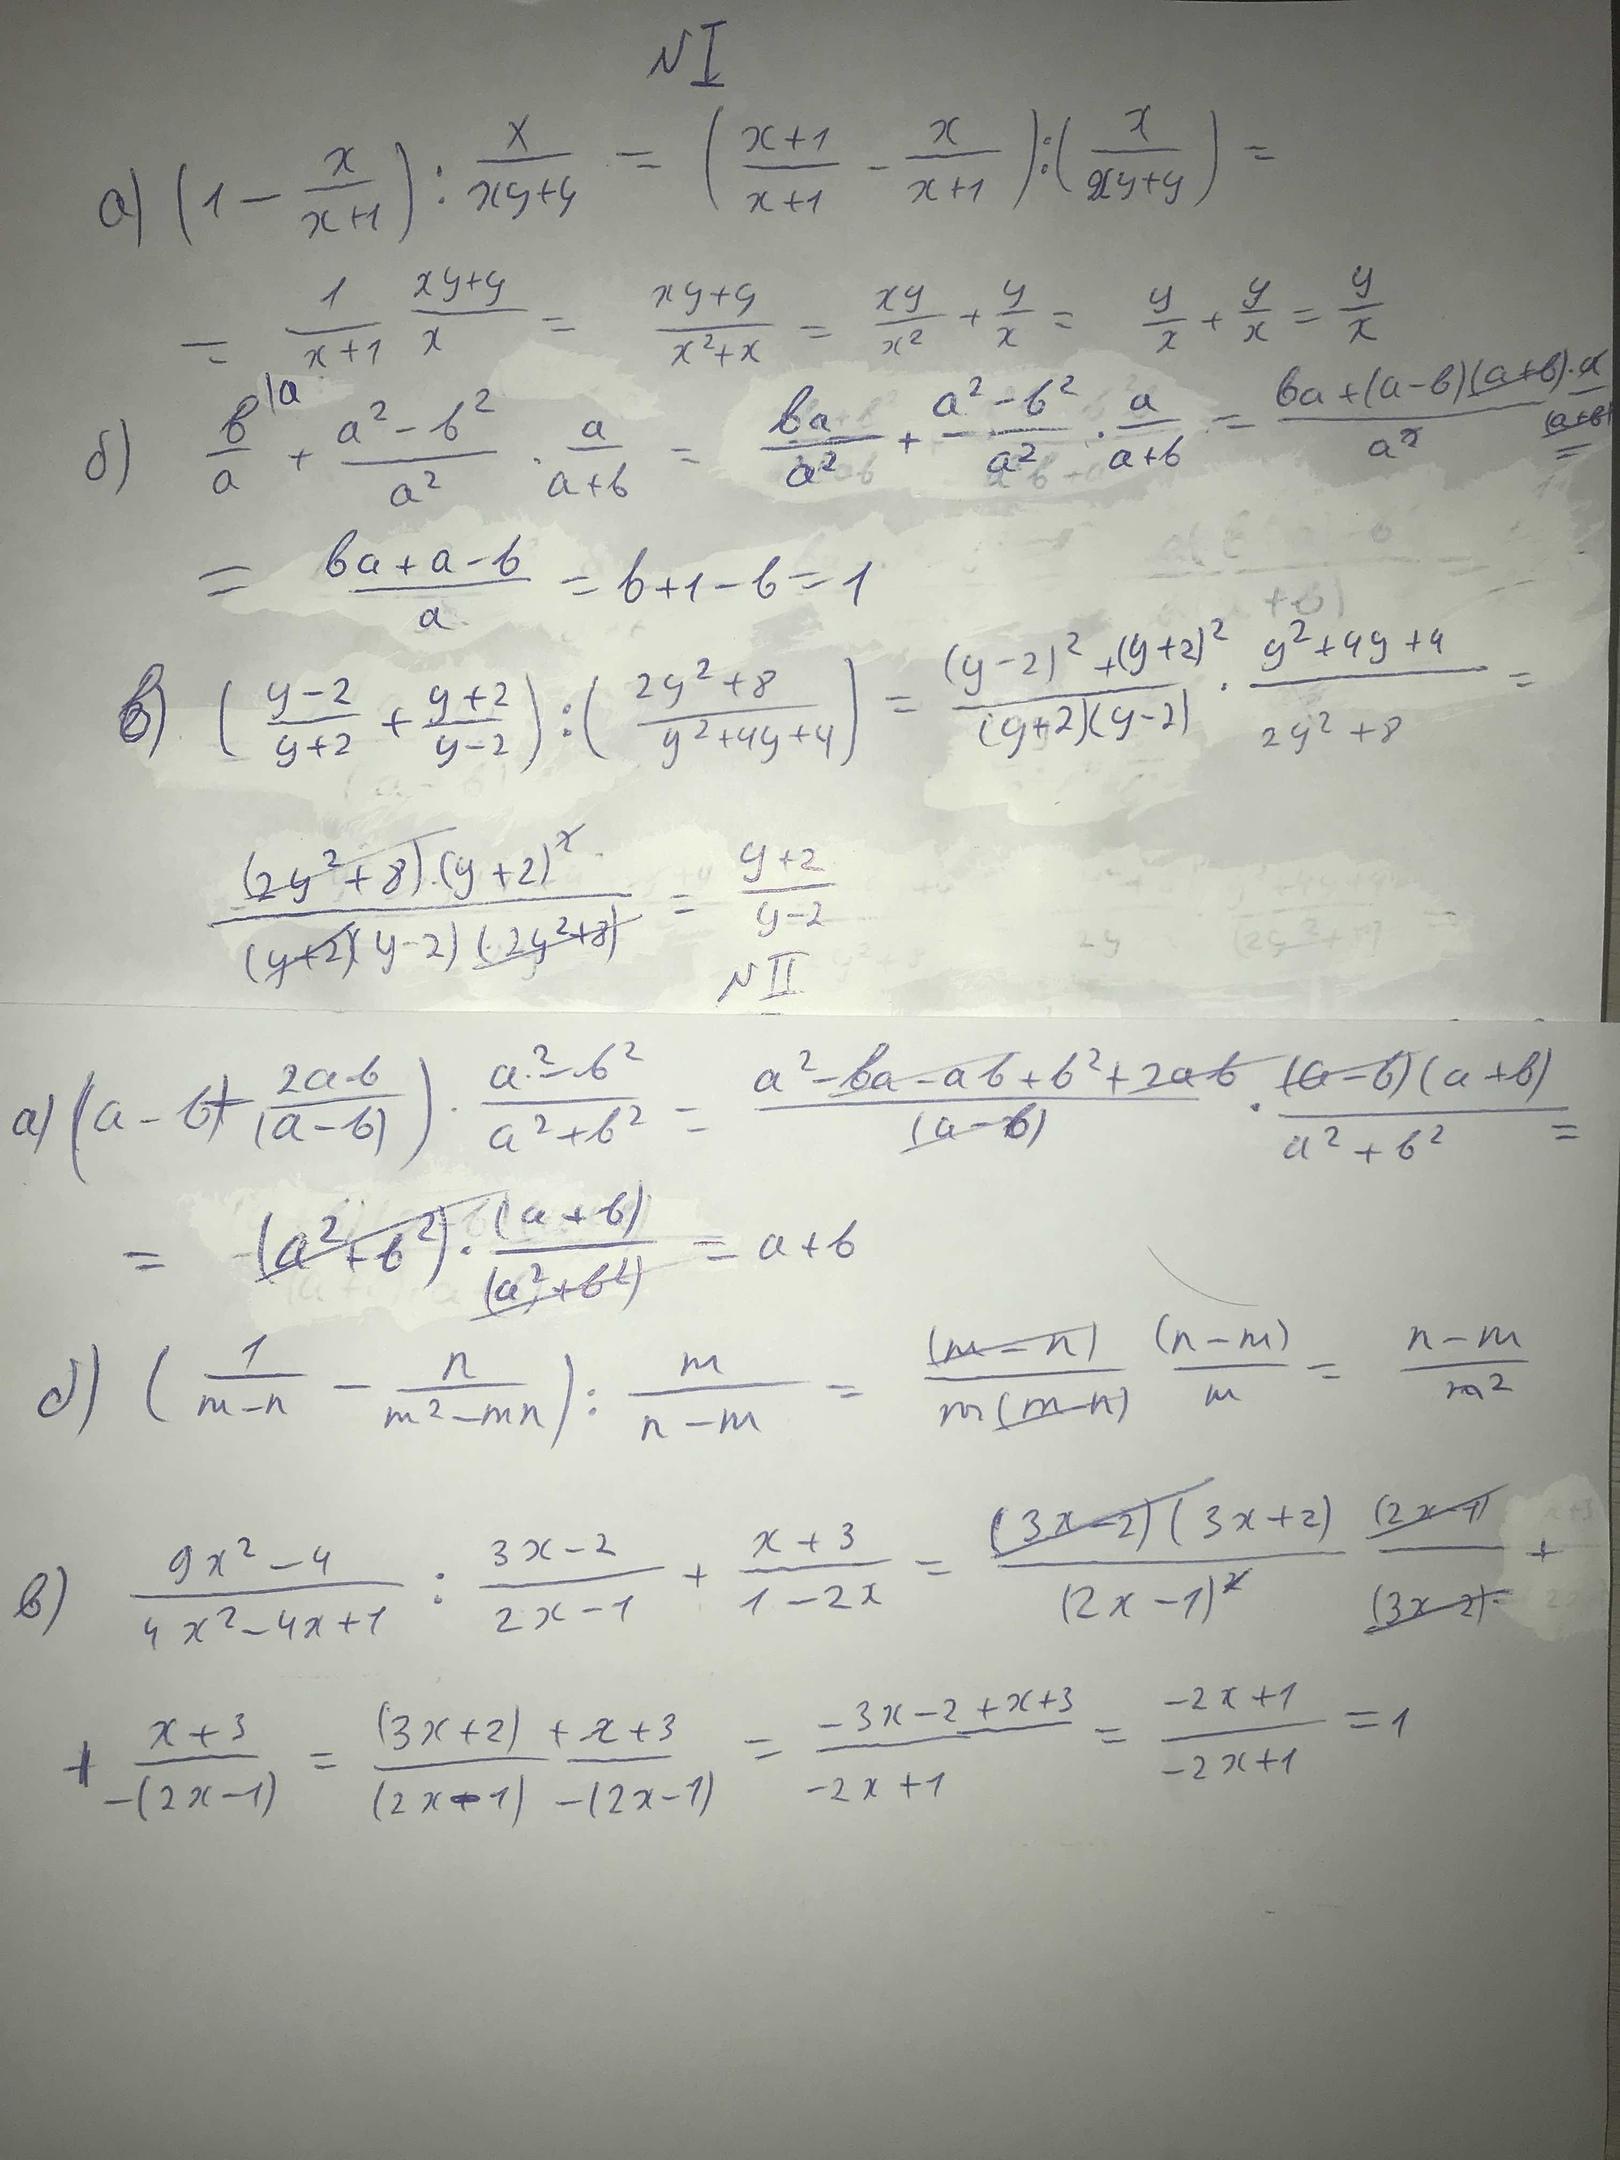 N I
а) (1 - x/(x+1)) : x/(xy+y) = ((x+1)/(x+1) - x/(x+1)) : (x/(xy+y)) =
= 1/(x+1) (xy+y)/x = (xy+y)/(x²+x) = xy/x² + y/x = y/x + y/x = y/x
б) b/a |a + (a²-b²)/a² · a/(a+b) = ba/a² + (a²-b²)/a² · a/(a+b) = (ba+(a-b)(a+b)·a)/(a² (a+b)) =
= (ba+a-b)/a = b+1-b=1
в) ((y-2)/(y+2) + (y+2)/(y-2)) : ((2y²+8)/(y²+4y+4)) = ((y-2)²+(y+2)²)/((y+2)(y-2)) · (y²+4y+4)/(2y²+8) =
((2y²+8)·(y+2)²)/((y+2)(y-2)(2y²+8)) = (y+2)/(y-2)
N II
а) (a-b+ 2ab/(a-b)) · (a²-b²)/(a²+b²) = (a²-ba-ab+b²+2ab)/(a-b) · ((a-b)(a+b))/(a²+b²) =
= (a²+b²)· (a+b)/(a²+b²) = a+b
б) (1/(m-n) - n/(m²-mn)) : m/(n-m) = (m-n)/(m(m-n)) (n-m)/m = (n-m)/m²
в) (9x²-4)/(4x²-4x+1) : (3x-2)/(2x-1) + (x+3)/(1-2x) = ((3x-2)(3x+2))/(2x-1)² (2x-1)/(3x-2) +
+ (x+3)/(-(2x-1)) = (3x+2)/(2x-1) + (x+3)/(-(2x-1)) = (-3x-2+x+3)/(-2x+1) = (-2x+1)/(-2x+1) = 1